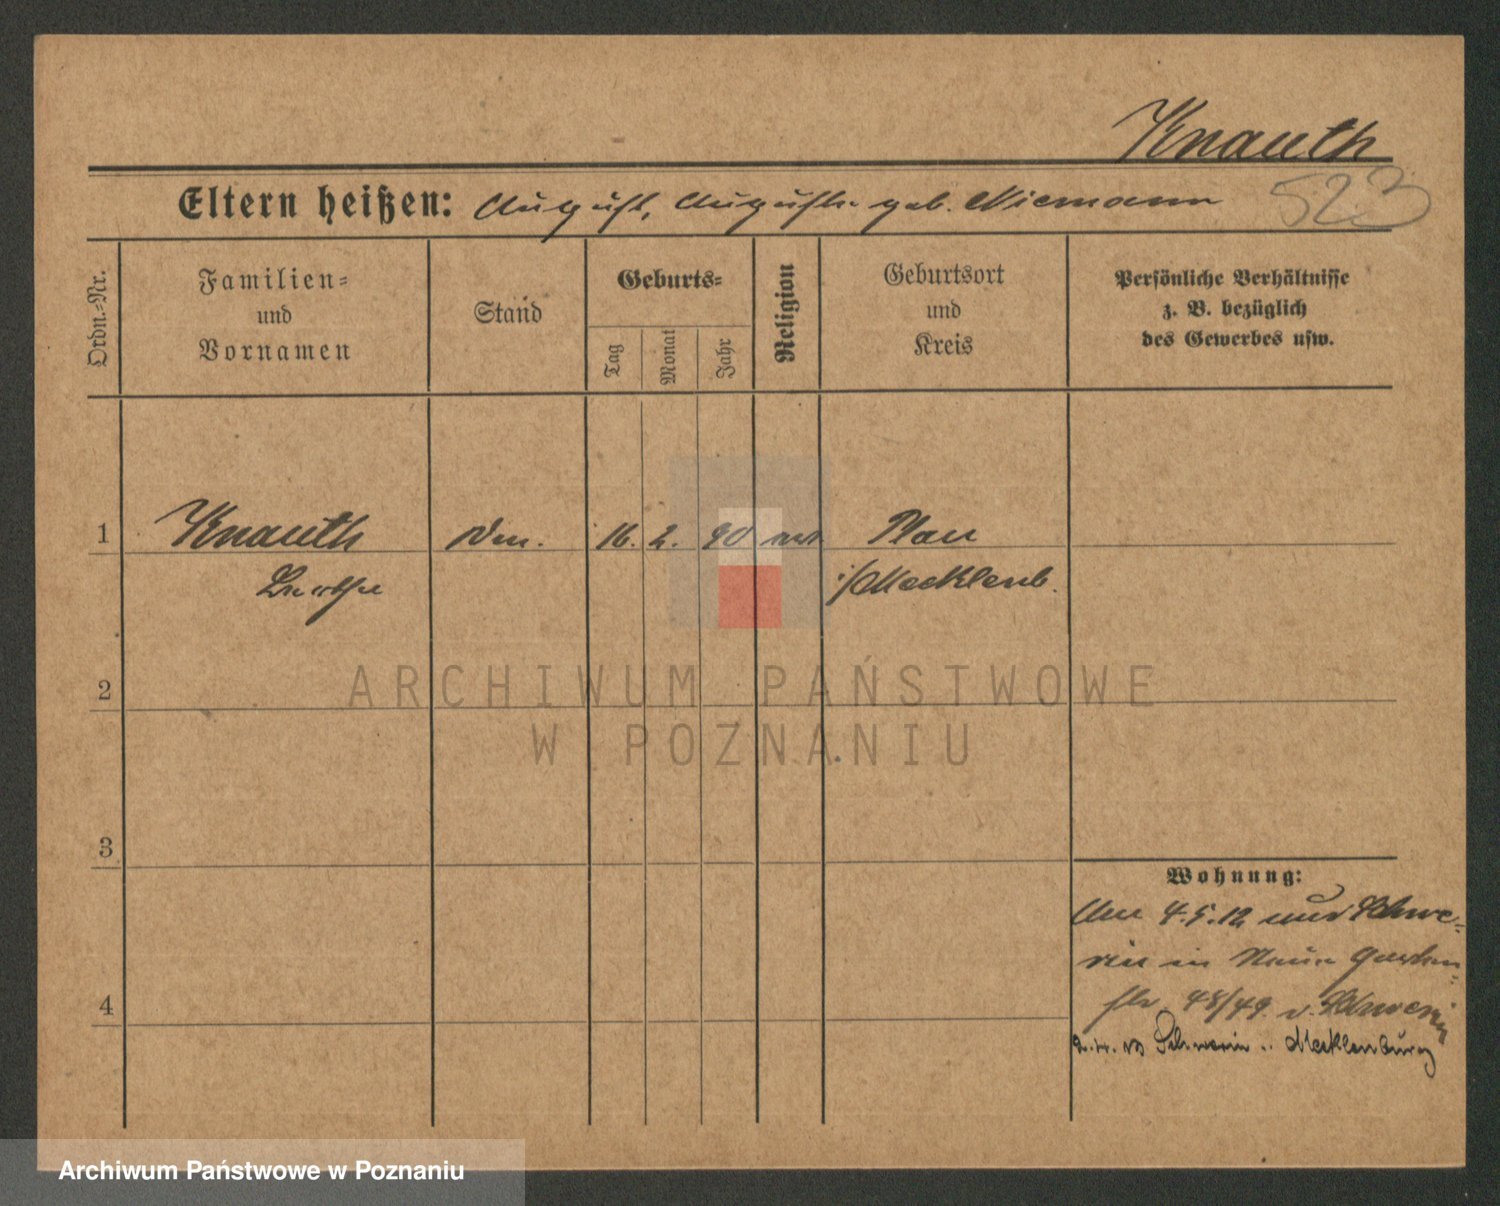 Knauth
Eltern heißen: August, Auguste geb. Niemann 523
Ordn.-Nr.
Familien- und Vornamen
Stand
Geburts-
Tag
Monat
Jahr
Religion
Geburtsort und Kreis
Persönliche Verhältnisse
z. B. bezüglich
des Gewerbes usw.
1 Knauth 16. 2. 90 Plau
i/Mecklenb.
2
3
4
Wohnung:
4.5.12 Schwe-
rin in Neue Garten-
str 48/49 v. Schwerin
Schwerin i. Mecklenburg
ARCHIWUM PAŃSTWOWE
W POZNANIU
Archiwum Państwowe w Poznaniu